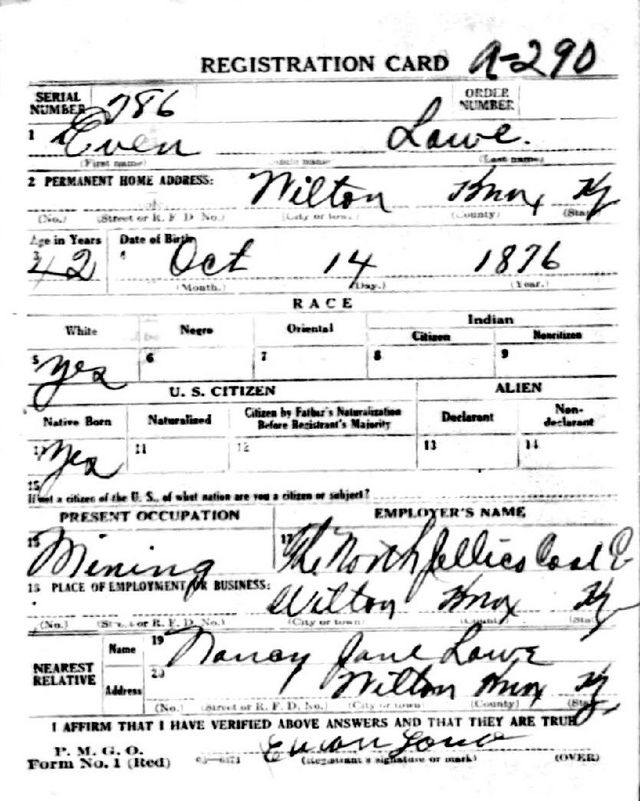 REGISTRATION CARD A-290
SERIAL NUMBER 786 ORDER NUMBER
1 Even Lowe.
(First name) (Last name)
2 PERMANENT HOME ADDRESS: Wilton Knox Ky
(No.) (Street or R. F. D. No.) (City or town) (County) (State)
Age in Years Date of Birth
3 42 4 Oct 14 1876
(Month.) (Day.) (Year.)
RACE
White Negro Oriental Indian
Citizen Noncitizen
5 Yes 6 7 8 9
U. S. CITIZEN ALIEN
Native Born Naturalized Citizen by Father's Naturalization Before Registrant's Majority Declarant Non-declarant
Yes 11 12 13 14
15
If not a citizen of the U. S., of what nation are you a citizen or subject?
PRESENT OCCUPATION EMPLOYER'S NAME
16 Mining 17 The North Jellico Coal Co
18 PLACE OF EMPLOYMENT OR BUSINESS:
Wilton Knox Ky
(No.) (Street or R. F. D. No.) (City or town) (County) (State)
NEAREST RELATIVE Name 19 Nancy Jane Lowe
Address 20 Wilton Knox Ky
(No.) (Street or R. F. D. No.) (City or town) (County) (State)
I AFFIRM THAT I HAVE VERIFIED ABOVE ANSWERS AND THAT THEY ARE TRUE
P. M. G. O.
Form No. 1 (Red) (Registrant's signature or mark) (OVER)